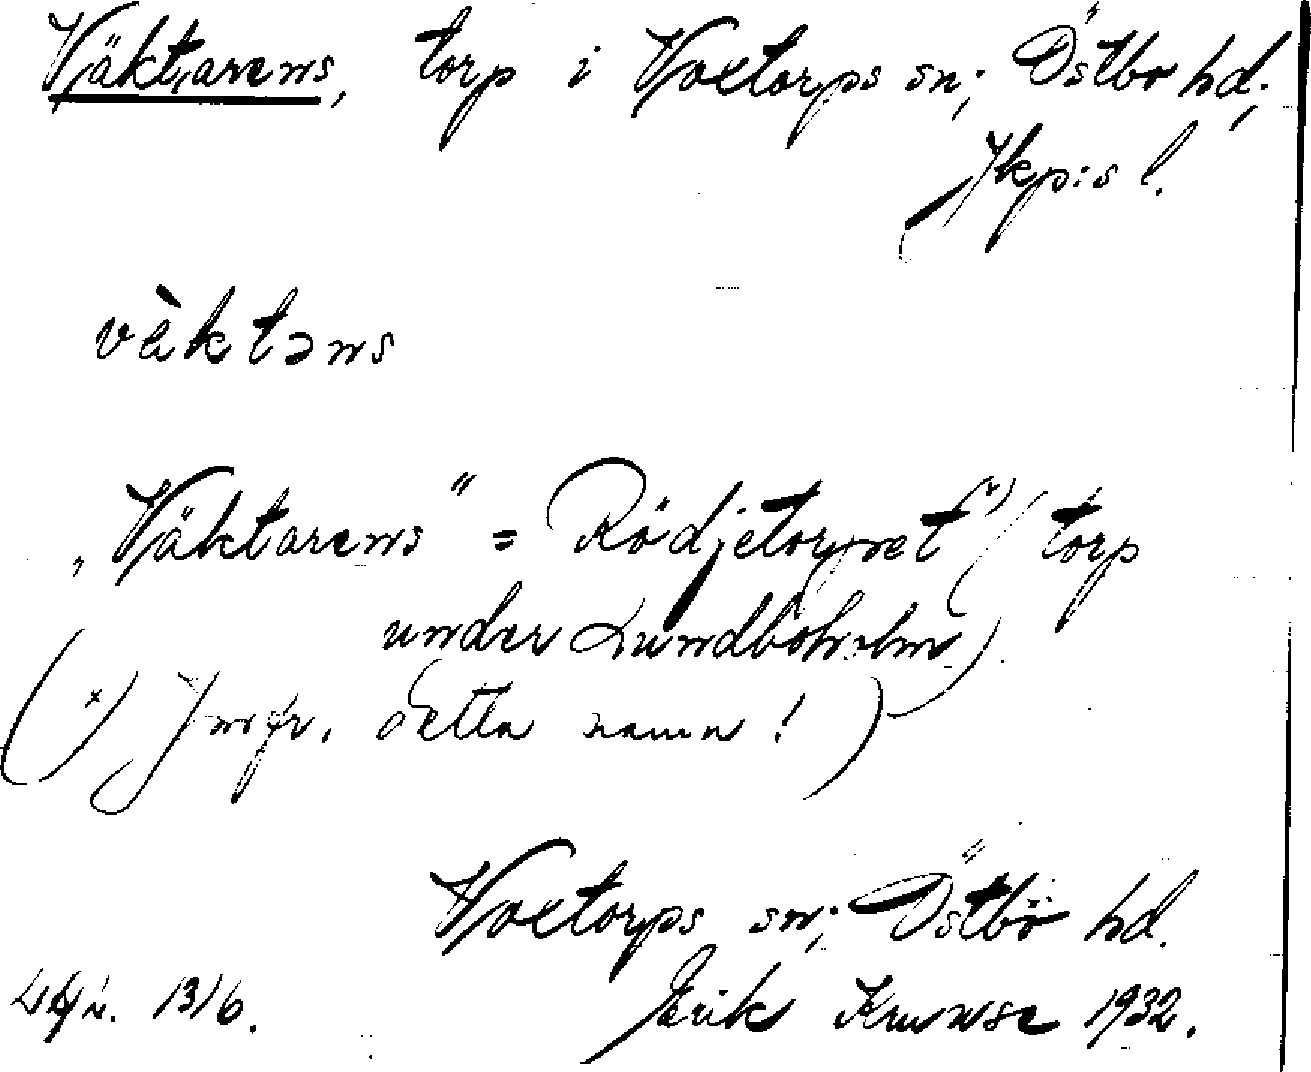 Väktarens, torp i Voxtorps sn; Östbo hd;
Jkp:s l.
vä̀ktəns
„Väktarens" = Rödjetorpet x) (torp
under Lundboholm)
(x) Jmfr. detta namn!)
Voxtorps sn; Östbo hd.
1316.
Erik Krunse 1932.